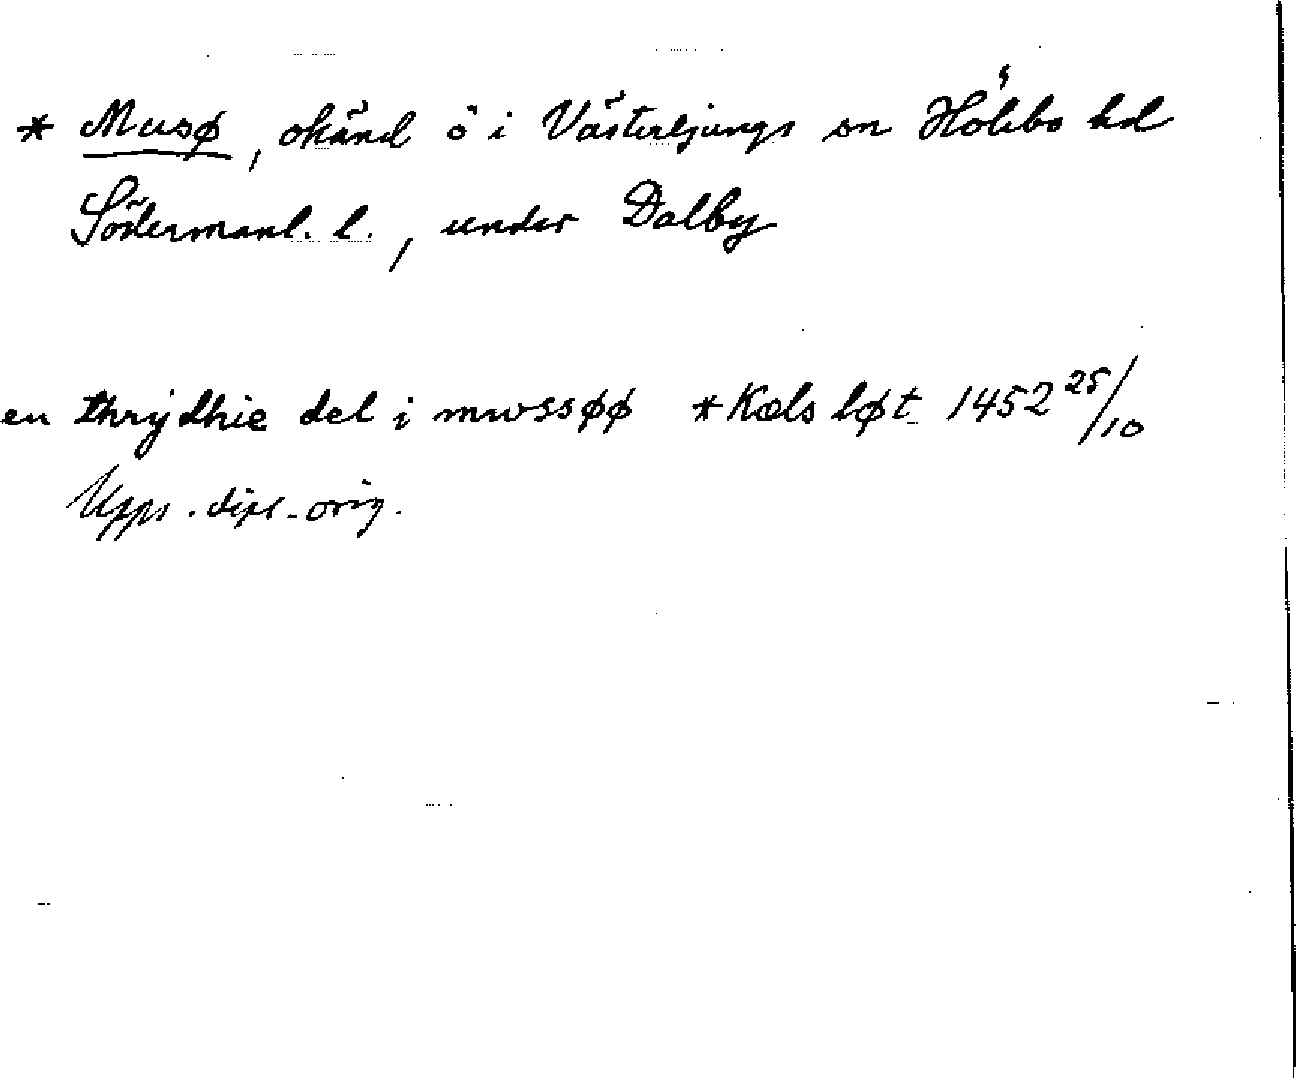 * Musø, okänd ö i Västerljungs sn Hölebo hd
Södermanl. l., under Dalby
en thrydhie del i mwssøø *Kælsløt 1452 25/10
Upps. dipl-orig.